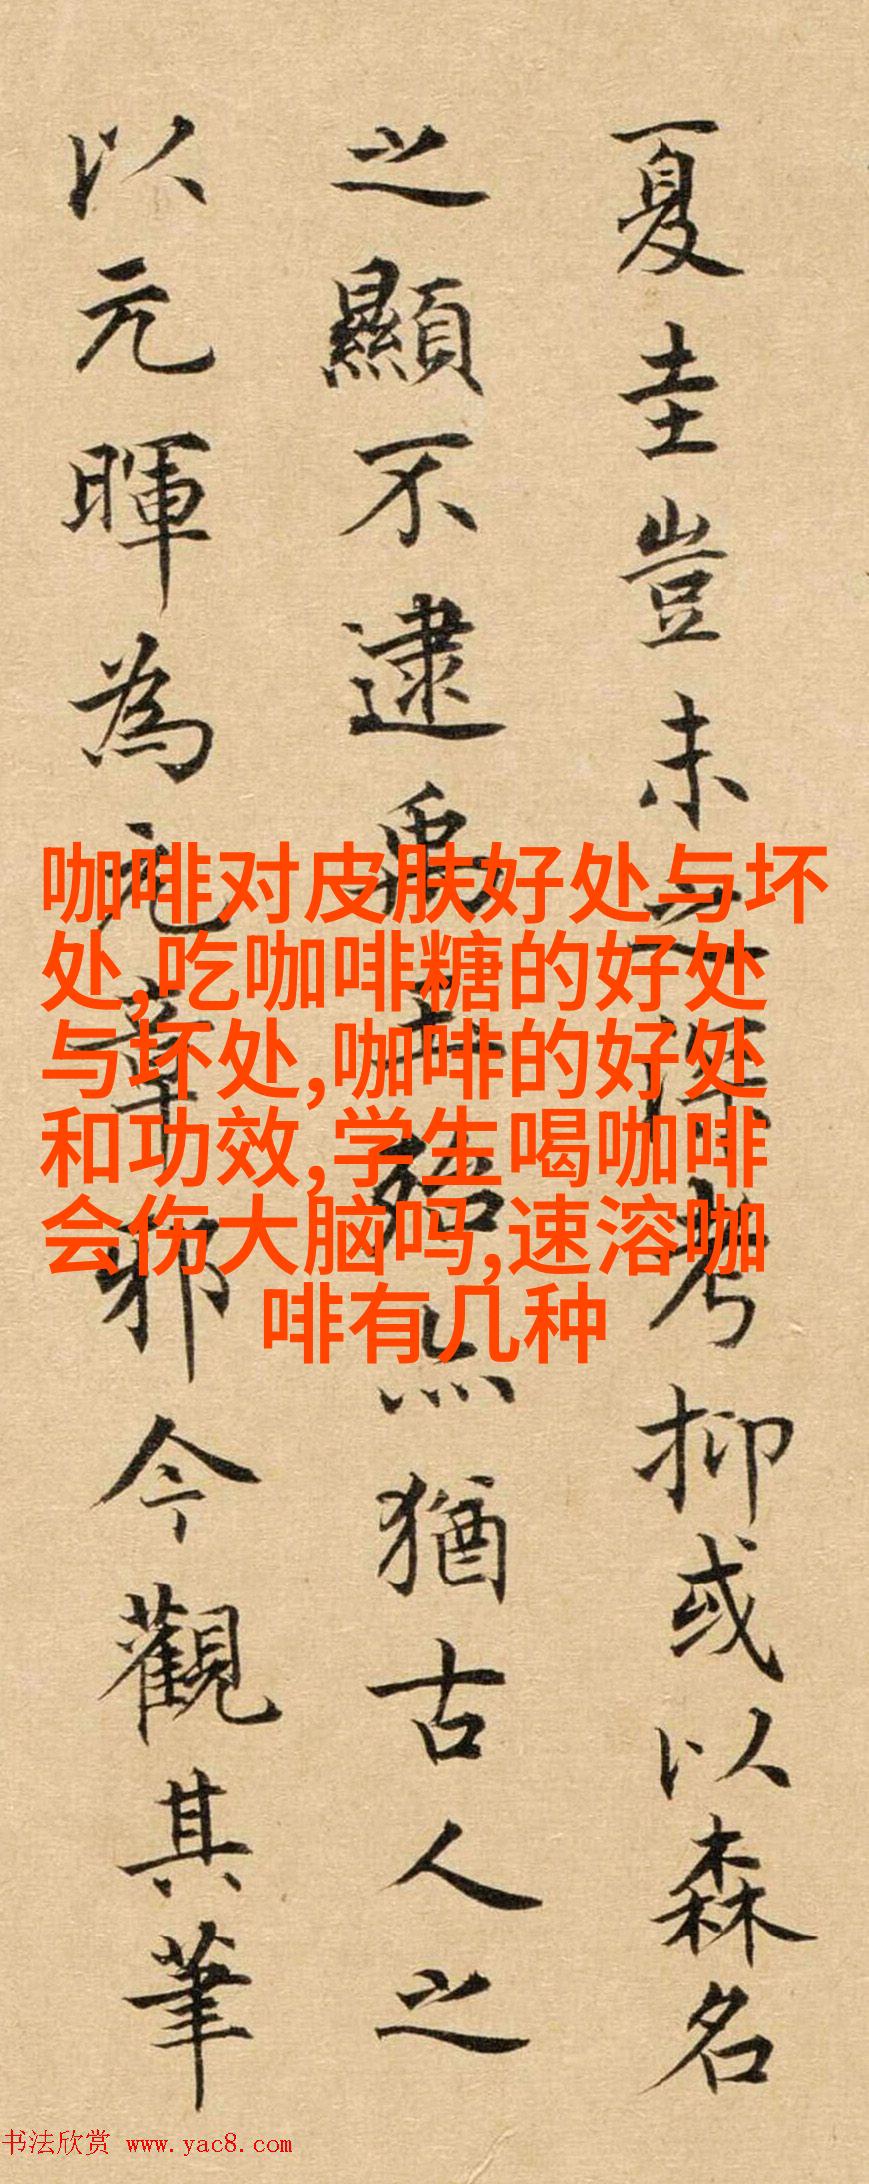 夏圭豈未之深考抑或以森名
之顯不逮禹玉殆亦猶古人之
以元暉為元章邪今觀其筆
咖啡对皮肤好处与坏
处,吃咖啡糖的好处
与坏处,咖啡的好处
和功效,学生喝咖啡
会伤大脑吗,速溶咖
啡有几种
书法欣赏 www.yac8.com